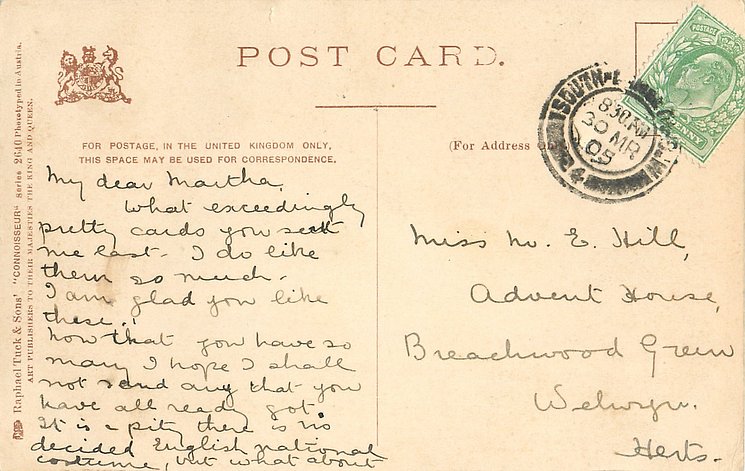 POST CARD.
FOR POSTAGE, IN THE UNITED KINGDOM ONLY,
THIS SPACE MAY BE USED FOR CORRESPONDENCE.
(For Address only
Raphael Tuck & Sons' "CONNOISSEUR" Series 2640 Phototyped in Austria.
ART PUBLISHERS TO THEIR MAJESTIES THE KING AND QUEEN.
POSTAGE
PENNY
8.30 PM
30 MR
05
My dear Martha,
What exceedingly
pretty cards you sent
me last. I do like
them so much.
I am glad you like
these.
Now that you have so
many I hope I shall
not send any that you
have all ready got.
It is a pity there is no
decided English national
costume, but what about
Miss M. E. Hill,
Advent House,
Breachwood Green
Welwyn.
Herts.